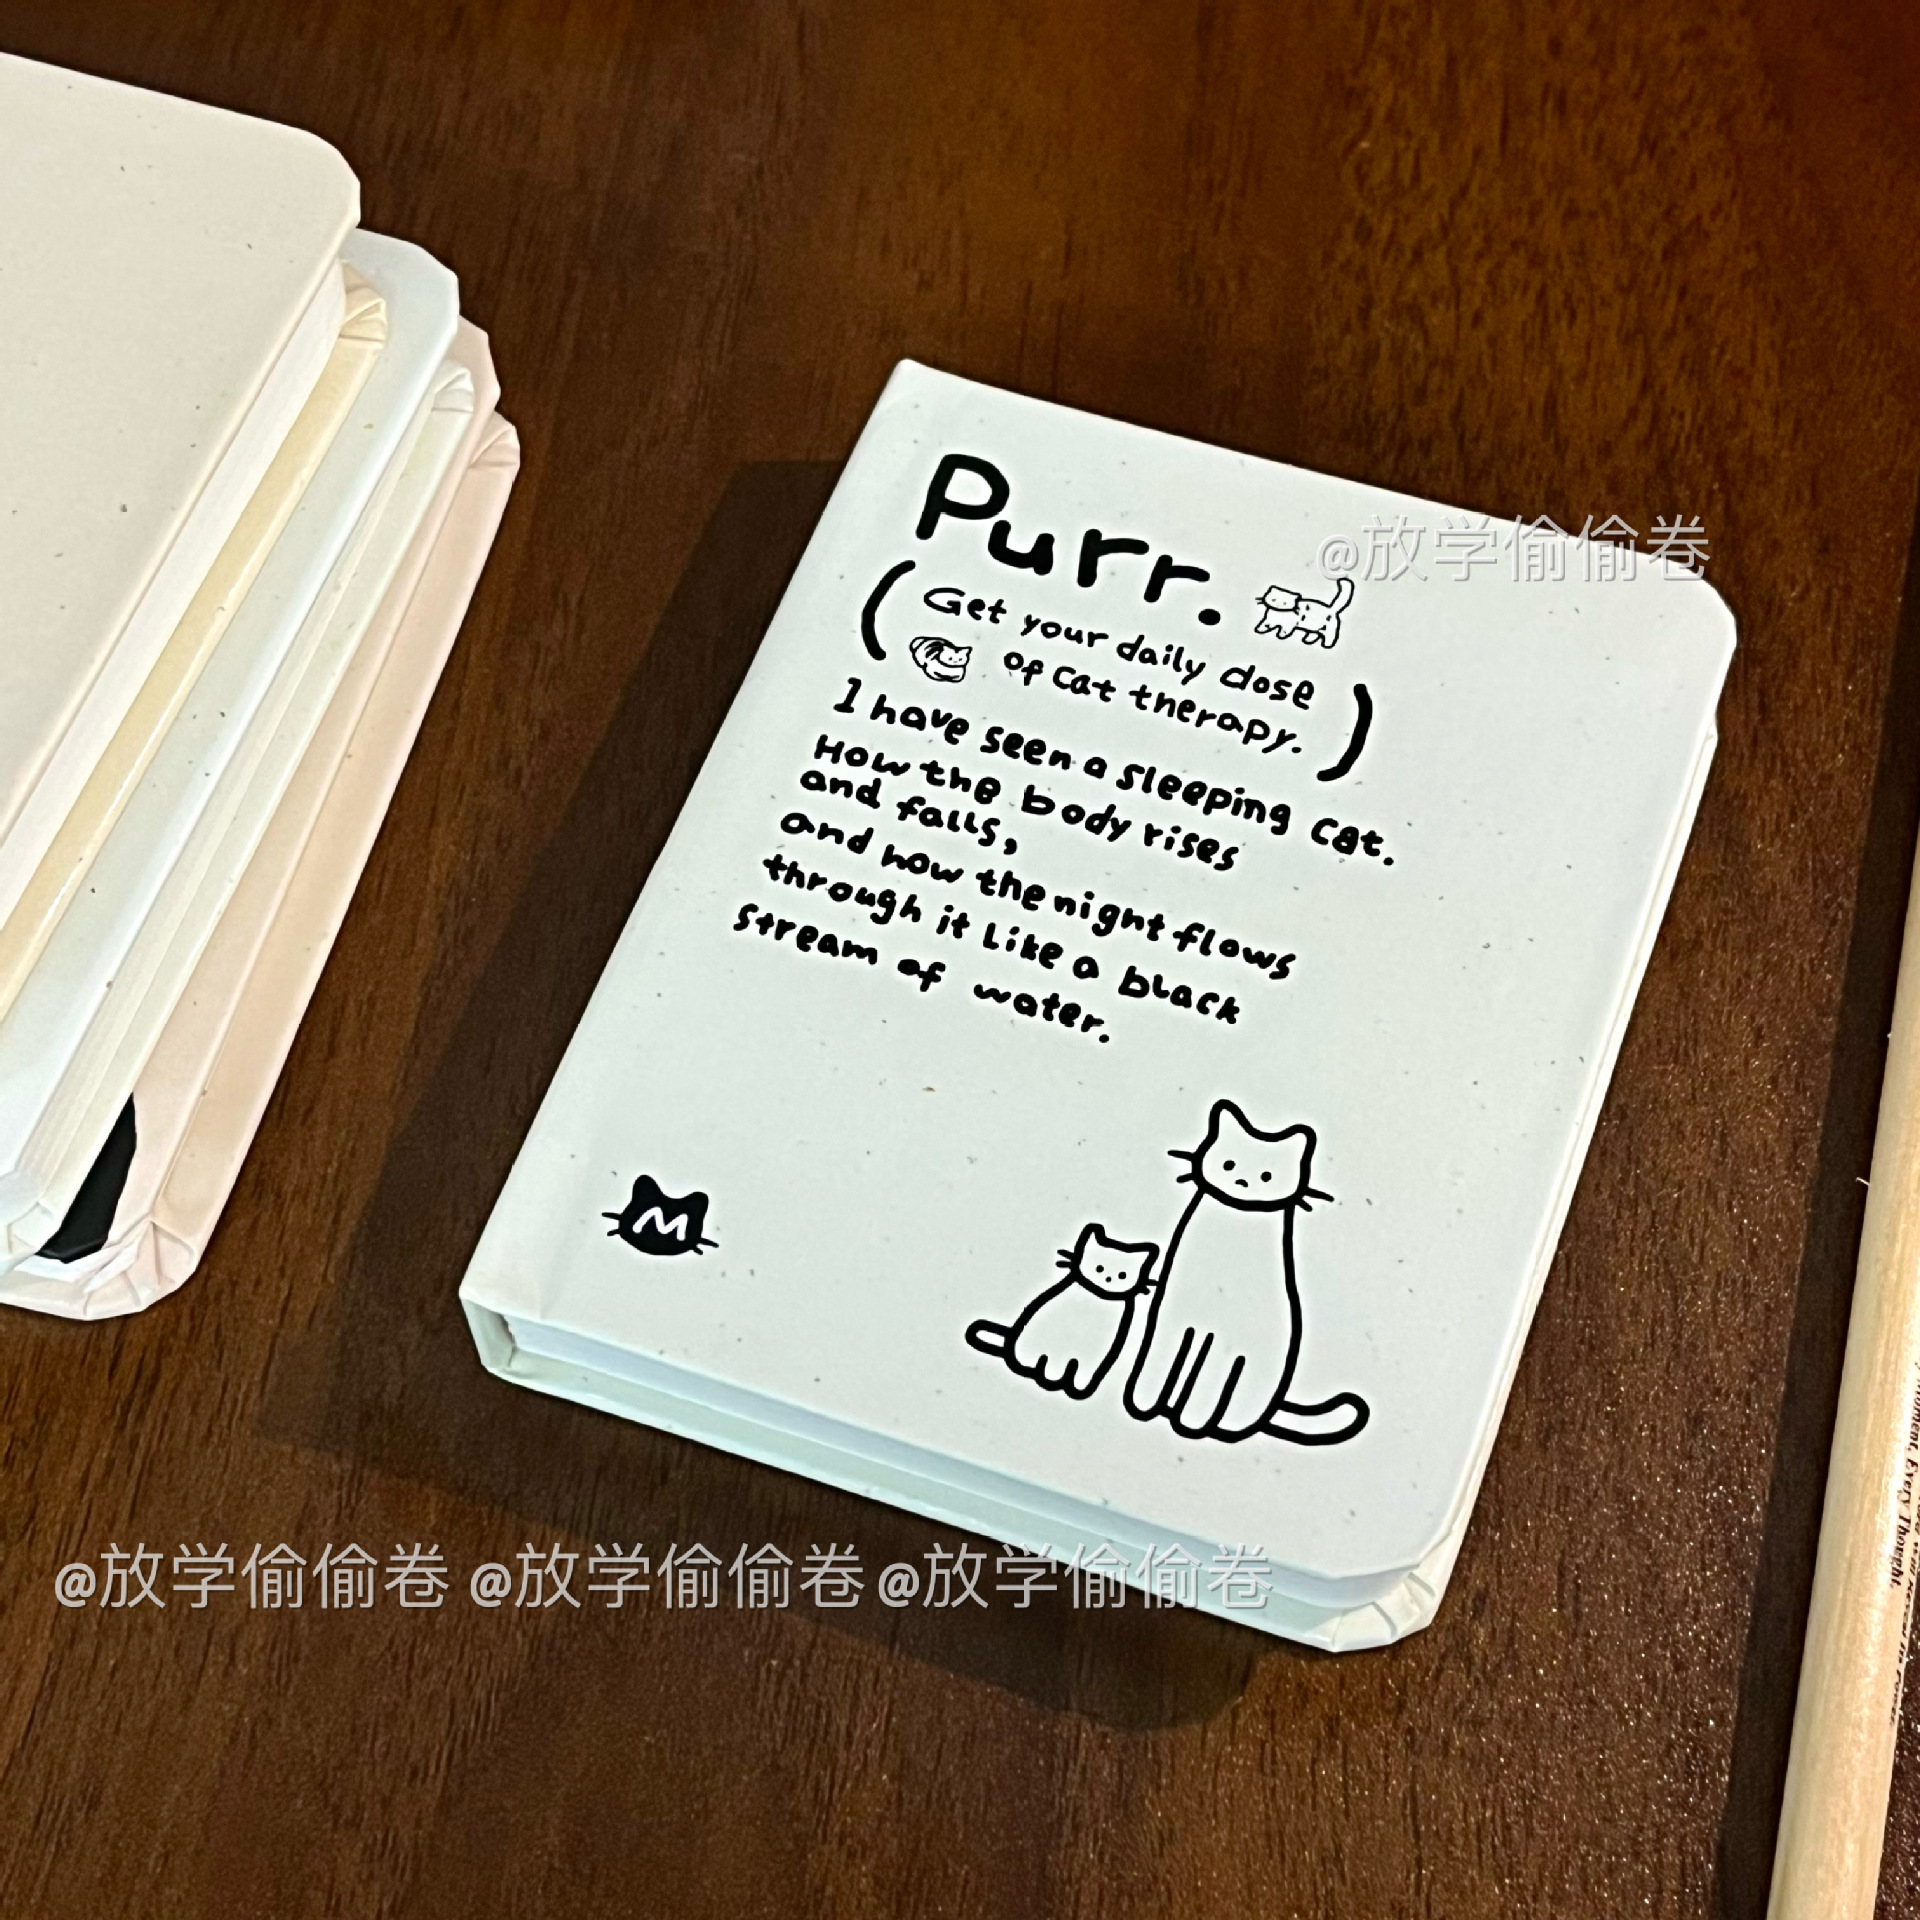 @放学偷偷卷
Purr.
(Get your daily dose
of cat therapy.)
I have seen a sleeping cat.
How the body rises
and falls,
and how the night flows
through it like a black
stream of water.
M
@放学偷偷卷 @放学偷偷卷 @放学偷偷卷
Every Thought